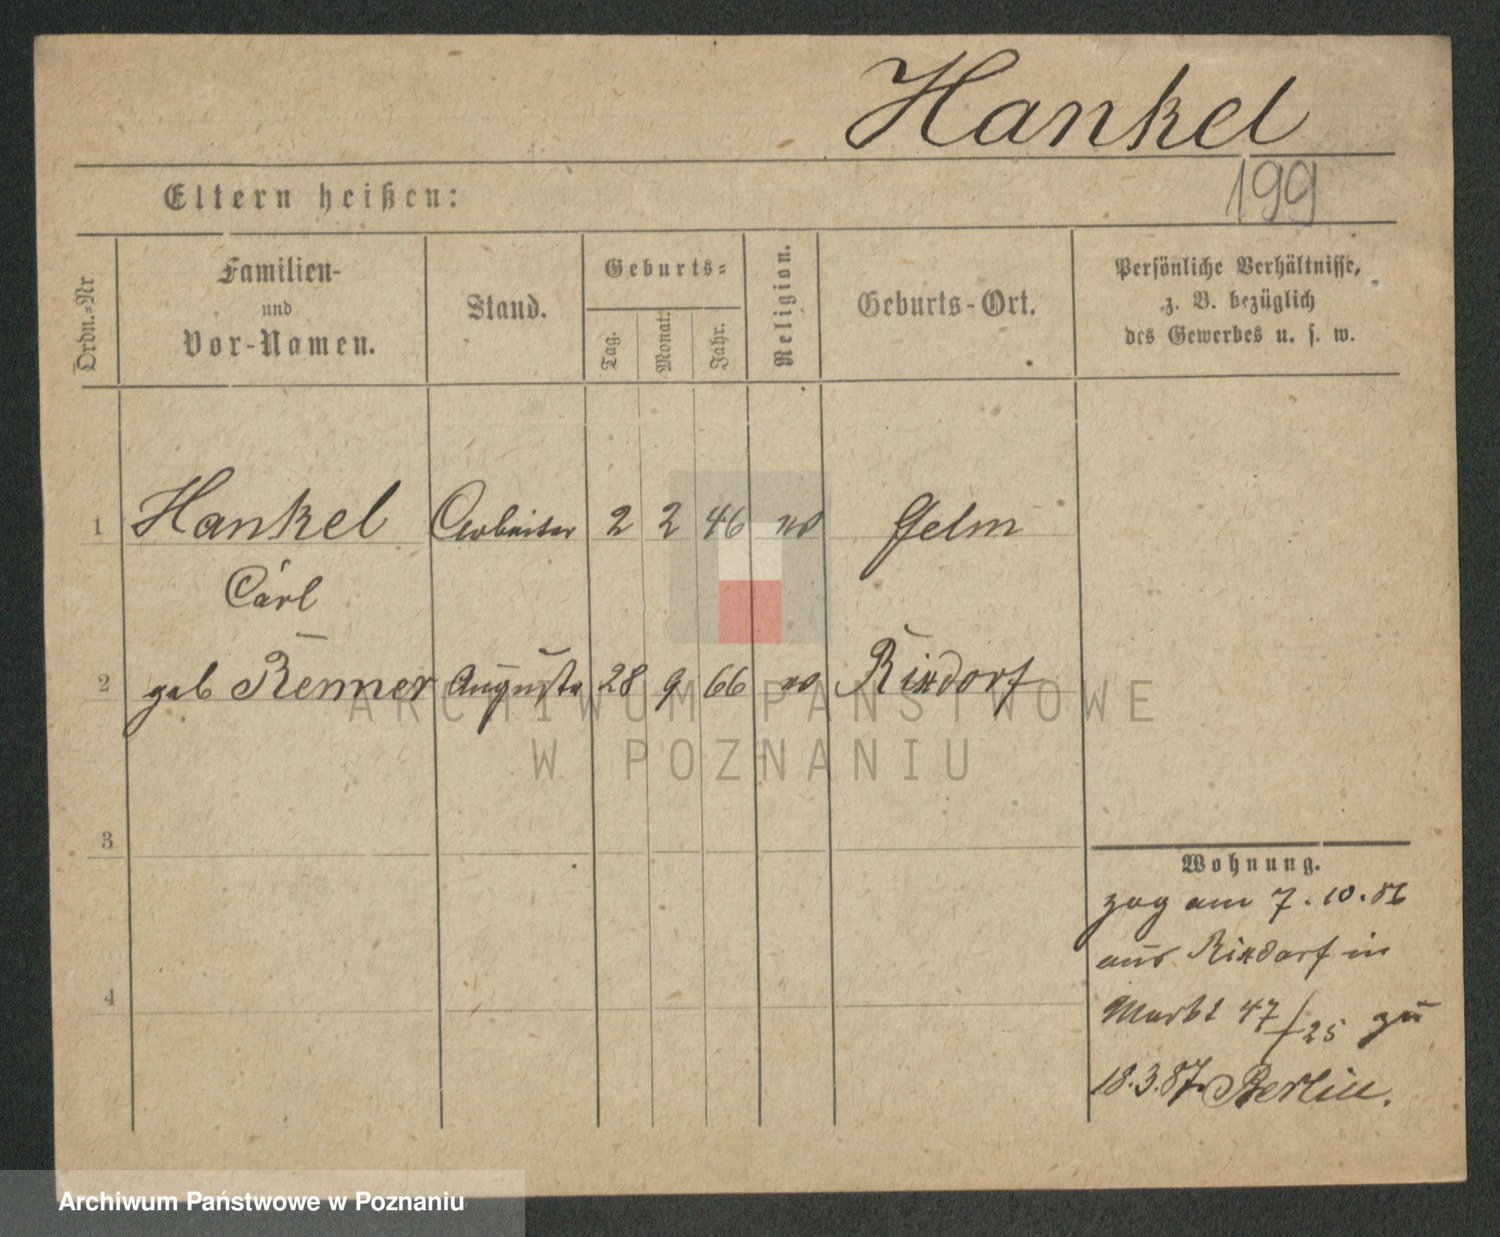 Hankel
199
Eltern heißen:
Ordn.=Nr
Familien-
und
Vor-Namen.
Stand.
Geburts=
Tag.
Monat.
Jahr.
Religion.
Geburts-Ort.
Persönliche Verhältnisse,
z. B. bezüglich
des Gewerbes u. s. w.
1 Hankel Arbeiter 2 2 46
Carl
2 geb Renner Auguste 28 9 66 Rixdorf
ARCHIWUM PAŃSTWOWE
W POZNANIU
3
4
Wohnung.
zog am 7.10.86
aus Rixdorf in
Markt 47/25 zu
18.3.87. Berlin.
Archiwum Państwowe w Poznaniu